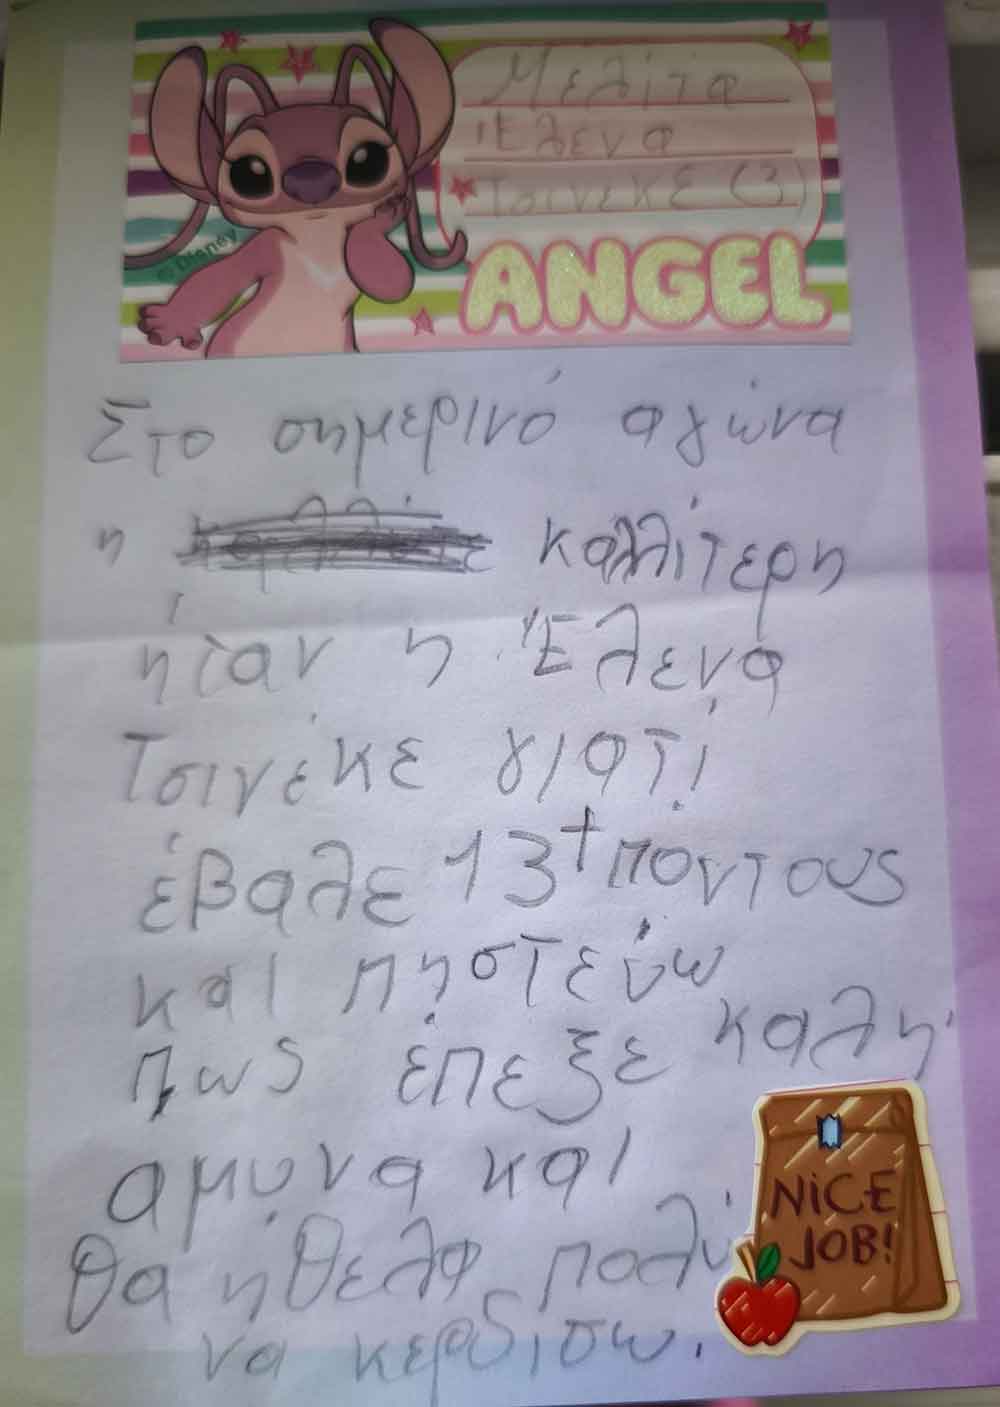 Μελίτα
Έλενα
Τσινεκε (3)
© Disney
ANGEL
Στο σημερινό αγώνα
η καλλίτερη
ήταν η Έλενα
Τσινέκε γιατί
έβαλε 13+ πόντους
και πηστεύω
πως έπεξε καλή
αμυνα και
θα ήθελα πολύ
να κερδισω.
NiCE
JOB!